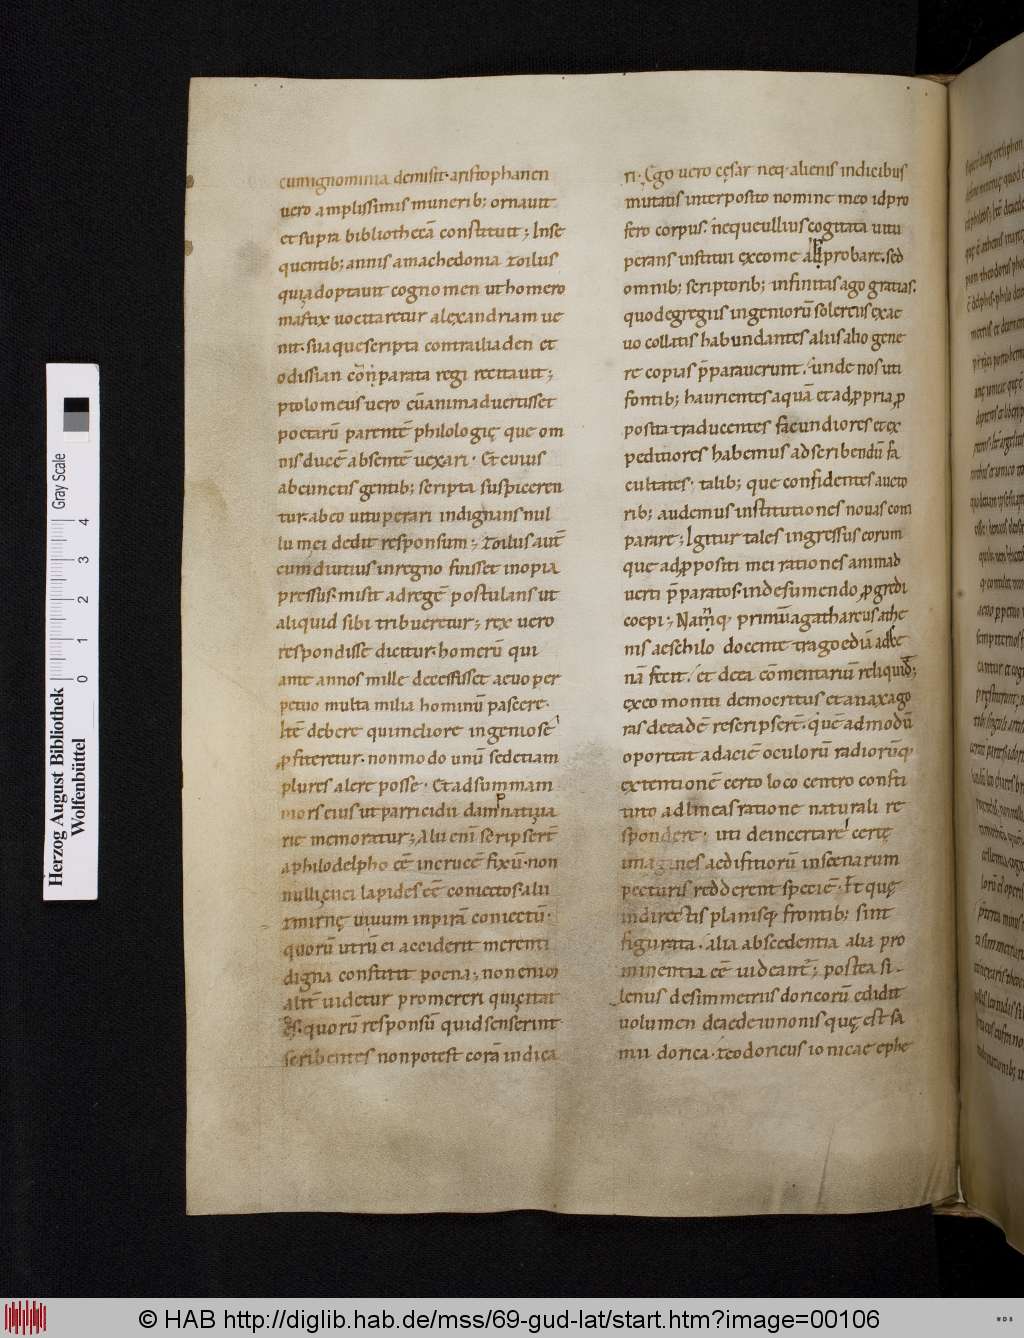 cum ignominia demisit· aristophanen
uero amplissimis munerib; ornauit
et supra bibliothecā constituit; Inse
quentib; annis amachedonia zoilus
qui adoptauit cognomen ut homero
mastix uocitaretur alexandriam ue
nit· suaque scripta contra iliaden et
odissian comparata regi recitauit;
ptolomeus uero cū animaduertisset
poetarū parentē philologię que om
nis ducē absentē uexari· Et cuius
abcunctis gentib; scripta suspiceren
tur· ab eo uituperari indignans nul
lu mei dedit responsum; zoilus aut̄
cum diutius inregno fuisset inopia
pressus· misit ad regē postulans ut
aliquid sibi tribueretur; rex uero
respondisse dicitur· homerū qui
ante annos mille decessisset aeuo per
petuo multa milia hominū pascere·
Itē debere qui meliore ingenio se
ꝓfiteretur· non modo unū sed etiam
plures alere posse· Et ad summam
mors eius ut parricidii damnati ua
rie memoratur; Alii eni scripserē
aphiladelpho eē incrucē fixū· non
nulli ei lapides eē coniectos· alii
zmirnę uiuum inpirā coniectū·
quorū utrū ei acciderit merenti
digna constitit poena; non enim
alit̄ uidetur promereri qui citat
eos· quorū responsū quid senserint
scribentes non potest corā indica
ri· Ego uero cęsar neq· alienis indicibus
mutatis interposito nomine meo id pro
fero corpus· neque ullius cogitata uitu
perans institui ex eo me approbare· sed
omnib; scriptorib; infinitas ago gratias·
quod egregiis ingeniorū solertiis ex ae
uo collatis habundantes alius alio gene
re copias p̄parauerunt· unde nos uti
fontib; haurientes aquā et ad ꝓpria ꝓ
posita traducentes facundiores et ex
peditiores habemus ad scribendū fa
cultates· talib; que confidentes aucto
rib; audemus institutiones nouas com
parare; Igitur tales ingressus eorum
que ad ꝓpositi mei rationes animad
uerti p̄paratos· inde sumendo ꝓgredi
coepi; Namq primū agatharcus athe
nis aeschilo docente tragoediā ad sce
nā fecit· et de ea cōmentariū reliquid;
ex eo moniti democritus et anaxago
ras de eadē rescripserē· quē ad modū
oporteat ad aciē oculorū radiorūq
extentionē certo loco centro consti
tuto ad lineas ratione naturali re
spondere· uti de incerta re certę
imagines aedificiorū inscenarum
picturis redderent speciē· Et quę
indirectis planisq frontib; sint
figurata· alia abscedentia alia pro
minentia eē uideant̄; postea si
lenus de simmetriis doricorū edidit
uolumen de aede iunonis quę est sa
mii dorica· teodoricus ionicae ephe
Herzog August Bibliothek
Wolfenbüttel
0 1 2 3 4
Gray Scale
© HAB http://diglib.hab.de/mss/69-gud-lat/start.htm?image=00106